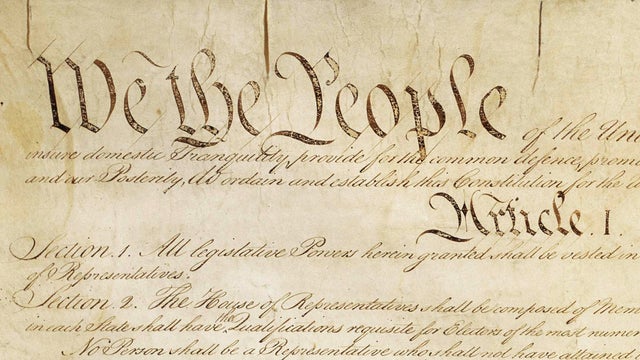 We the People of the Uni
insure domestic Tranquility, provide for the common defence, prom
and our Posterity, do ordain and establish this Constitution for the U
Article. I.
Section. 1. All legislative Powers herein granted shall be vested in
of Representatives.
Section. 2. The House of Representatives shall be composed of Mem
in each State shall have the Qualifications requisite for Electors of the most numer
No Person shall be a Representative who shall not have attained